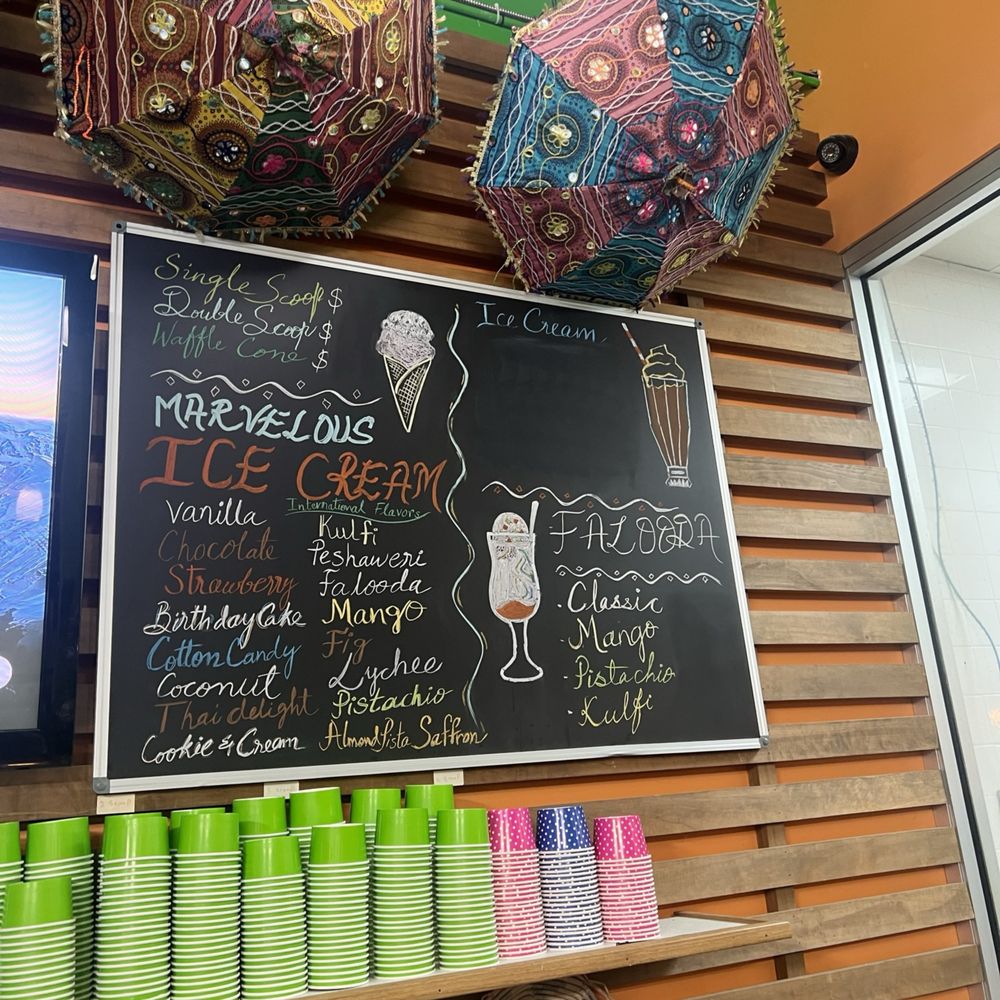 Single Scoop $
Double Scoop $
Waffle Cone $
MARVELOUS
ICE CREAM
Vanilla
Chocolate
Strawberry
Birthday Cake
Cotton Candy
Coconut
Thai delight
Cookie & Cream
International Flavors
Kulfi
Peshaweri
Falooda
Mango
Fig
Lychee
Pistachio
Almond Pista Saffron
Ice Cream
FALOODA
· Classic
· Mango
· Pistachio
· Kulfi